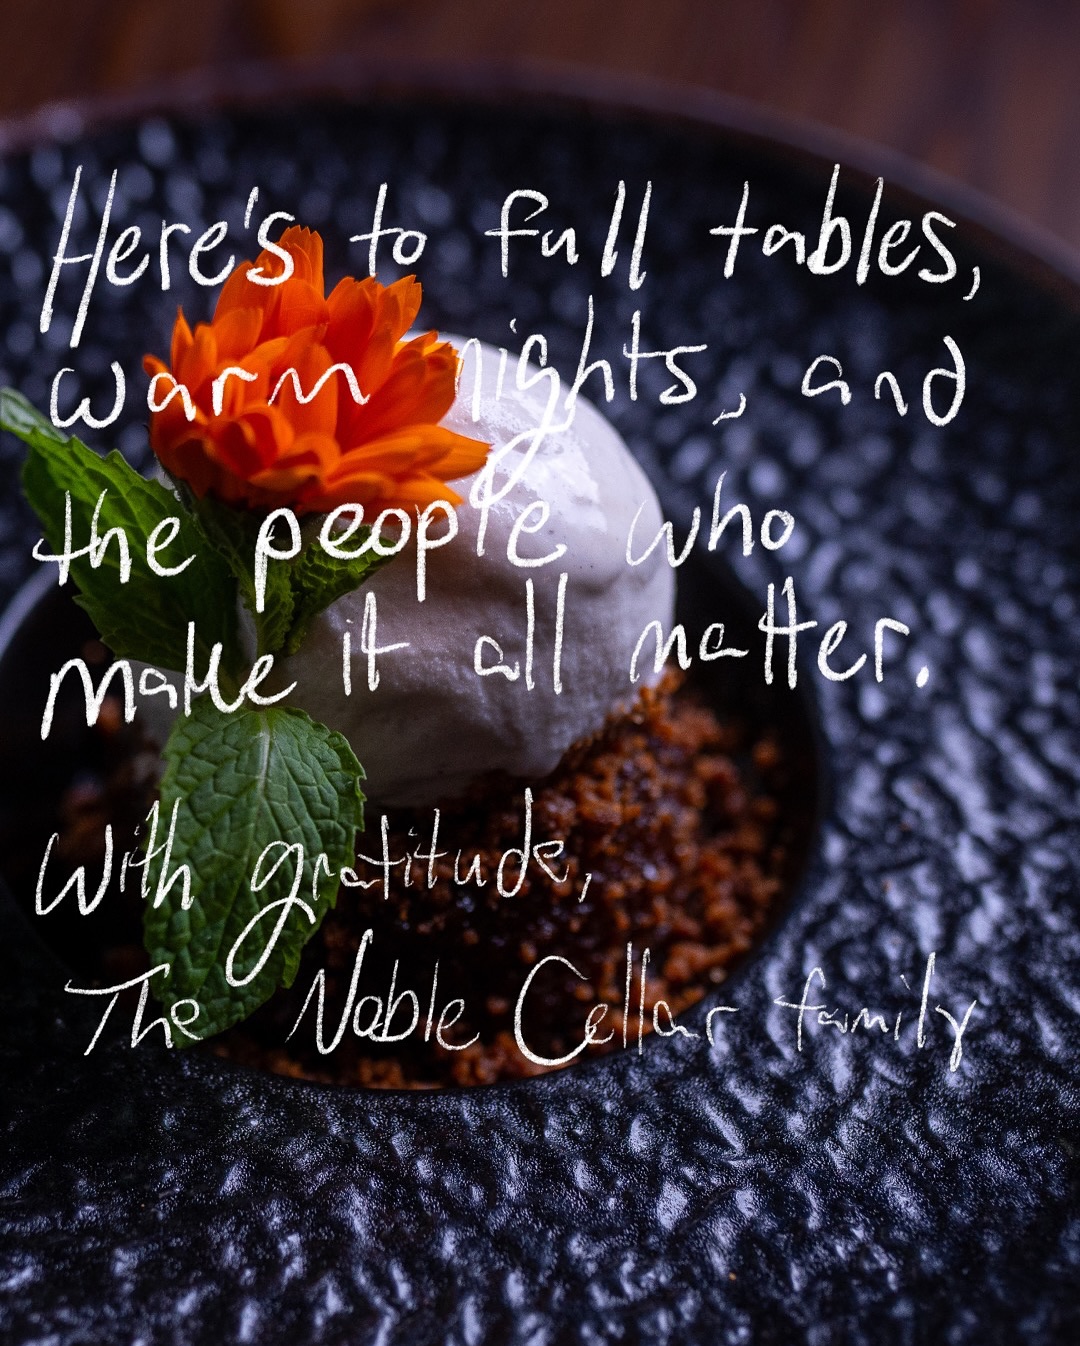 Here's to full tables,
warm nights, and
the people who
make it all matter.
With gratitude,
The Noble Cellar family